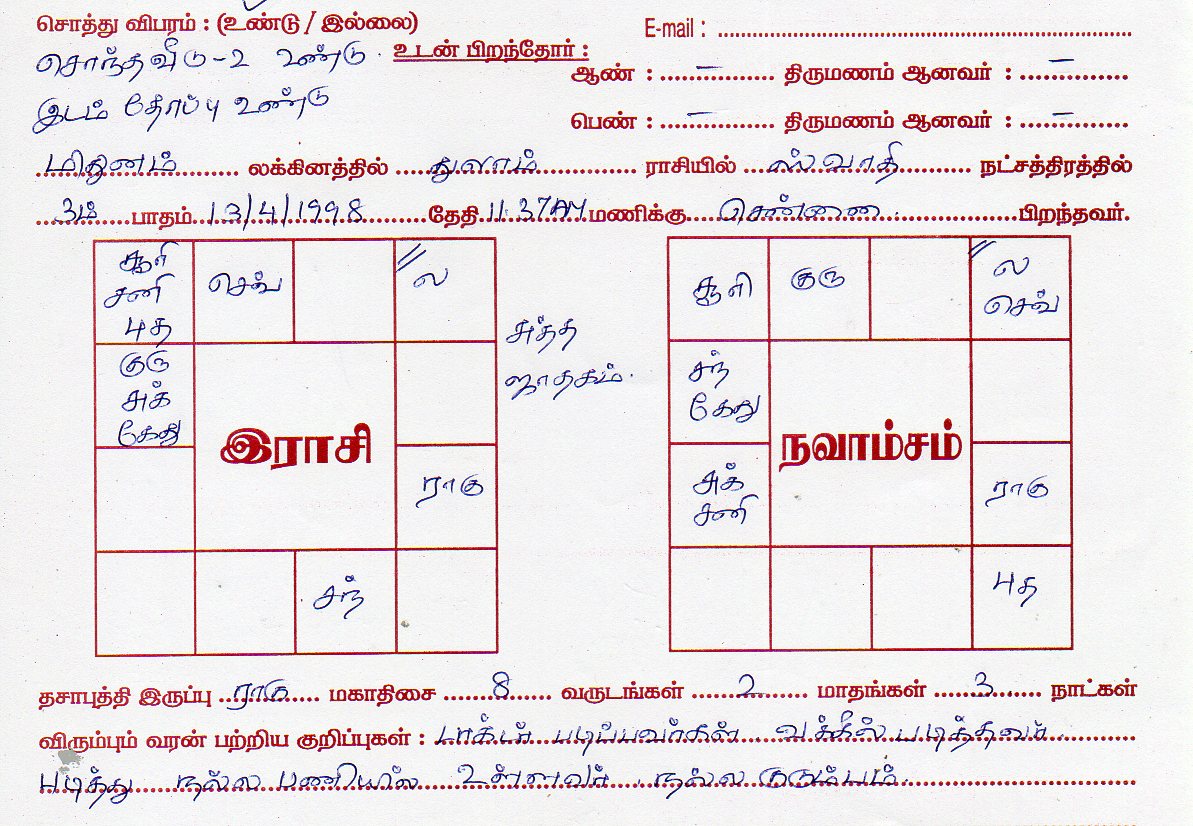 சொத்து விபரம் : (உண்டு / இல்லை)
E-mail :
சொந்தவீடு - 2 உண்டு.
உடன் பிறந்தோர் :
ஆண் : – திருமணம் ஆனவர் : –
இடம் தோப்பு உண்டு
பெண் : – திருமணம் ஆனவர் : –
மிதுனம் லக்கினத்தில் துலாம் ராசியில் ஸ்வாதி நட்சத்திரத்தில்
3ம் பாதம் 13/4/1998 தேதி 11.37AM மணிக்கு சென்னை பிறந்தவர்.
சூரி
சனி
புத
செவ்
ல
குரு
சுக்
கேது
இராசி
ராகு
சந்
சுத்த
ஜாதகம்.
சூரி
குரு
ல
செவ்
சந்
கேது
நவாம்சம்
சுக்
சனி
ராகு
புத
தசாபுத்தி இருப்பு ராகு மகாதிசை 8 வருடங்கள் 2 மாதங்கள் 3 நாட்கள்
விரும்பும் வரன் பற்றிய குறிப்புகள் : டாக்டர் படிப்பவர்கள் வக்கீல் படித்தவர்
படித்து நல்ல பணியில் உள்ளவர். நல்ல குடும்பம்.